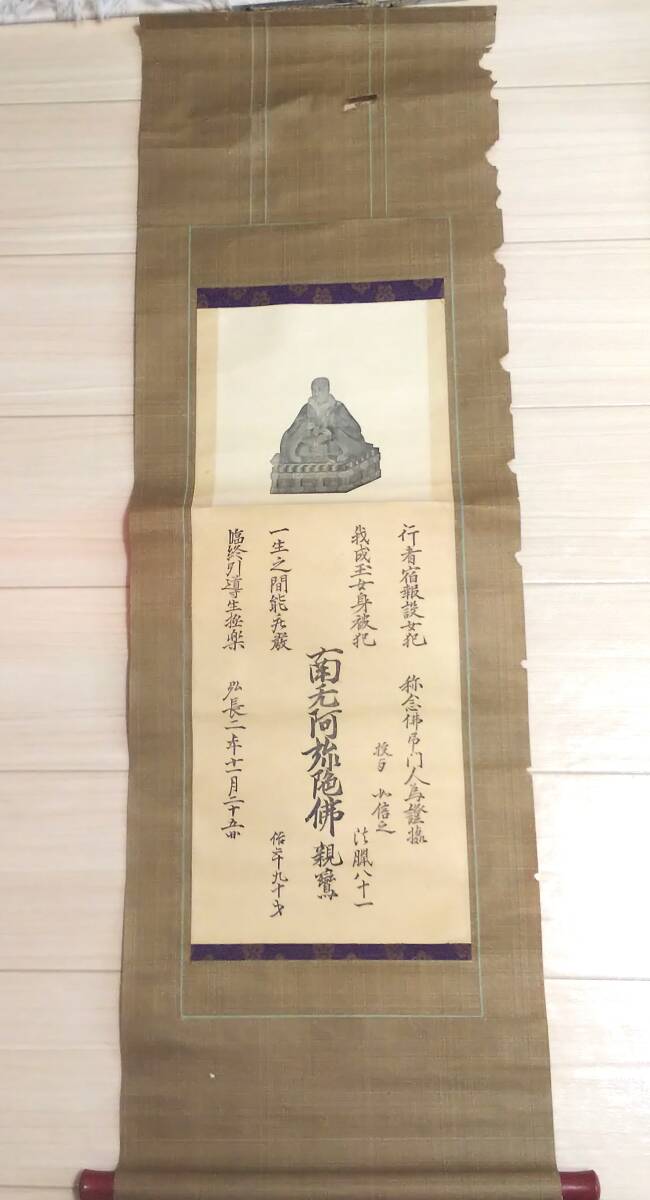 行者宿報設女犯
称念佛弟門人為證據
我成玉女身被犯
授与 必信之
法臘八十一
南无阿弥陀佛 親鸞
一生之間能荘嚴
俗年九十才
臨終引導生極楽
弘長二年十一月二十五